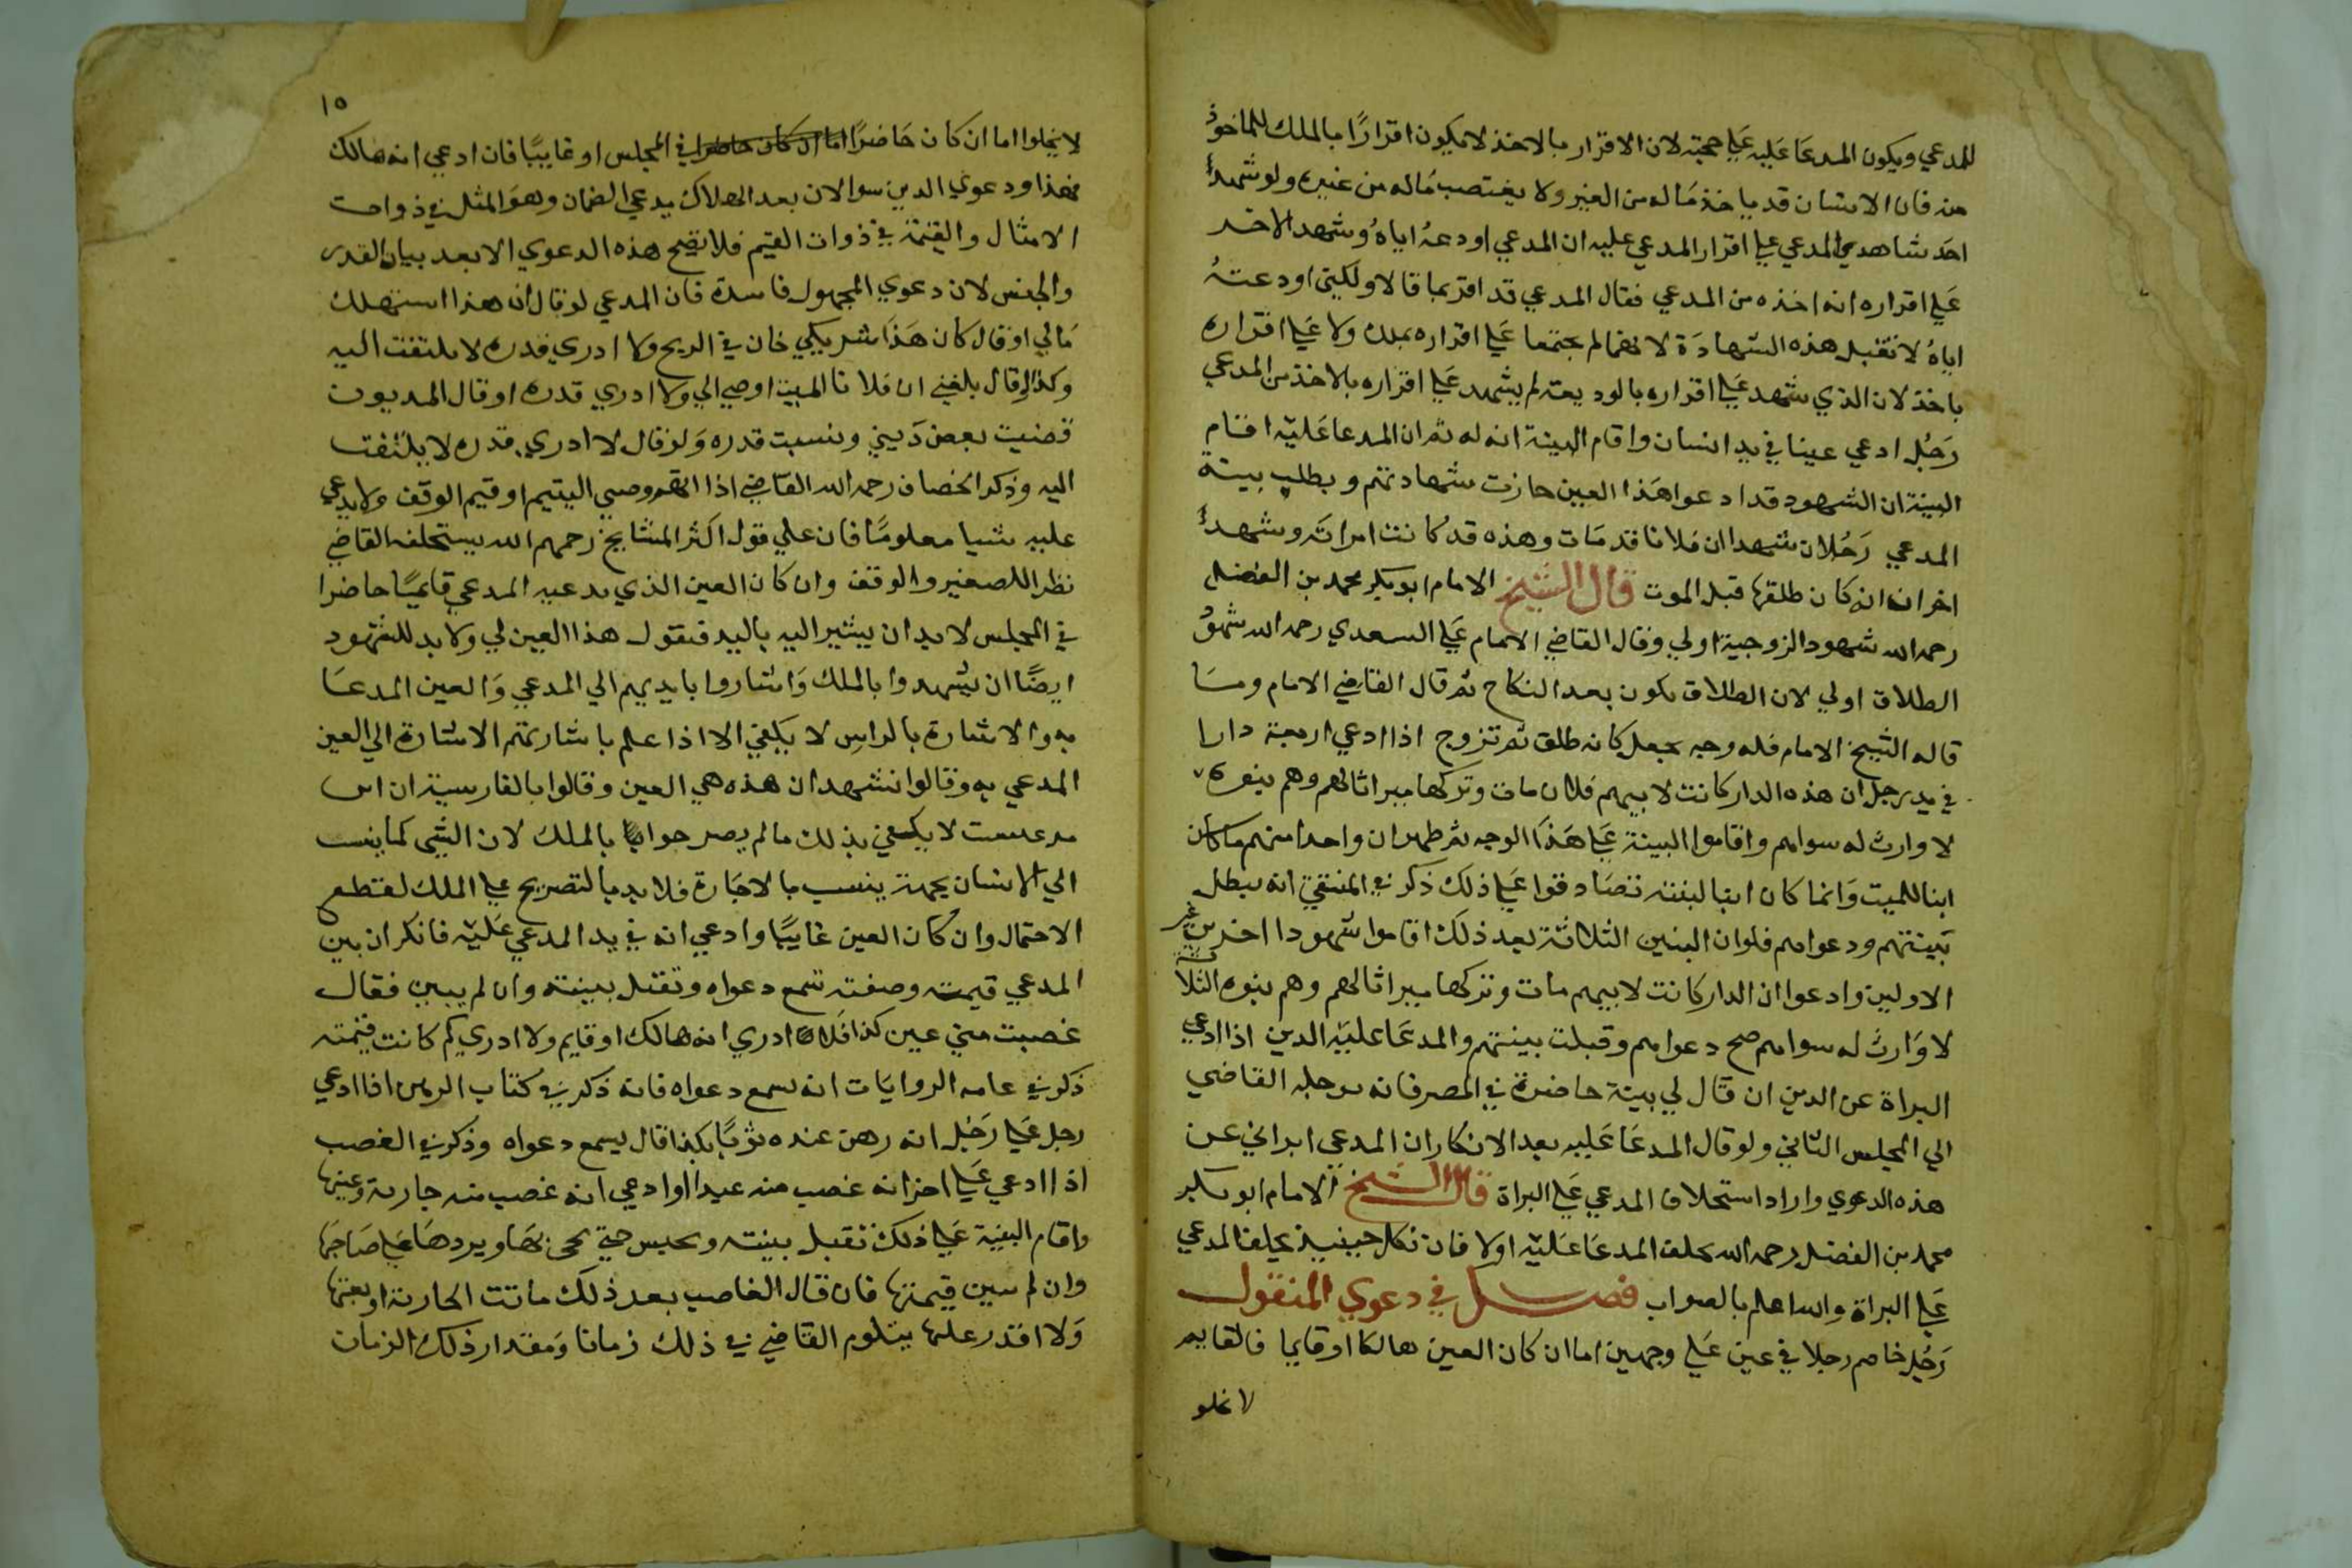 للمدعي ويكون المدعا عليه علي حجته لان الاقرار بالاخذ لا يكون اقرارًا بالملك للماخوذ
منه فان الانسان قد ياخذ ماله من الغير ولا يغتصب ماله من غيره ولو شهد
احد شاهدي المدعي علي اقرار المدعي عليه ان المدعي اودعه اياه وشهد الاخر
علي اقراره انه اخذه من المدعي فقال المدعي قد اقر بما قالا ولكني اودعته
اياه لا تقبل هذه الشهادة لانهما لم يجتمعا علي اقراره بملك ولا علي اقراره
باخذ لان الذي شهد علي اقراره بالوديعة لم يشهد علي اقراره بالاخذ من المدعي
رجل ادعي عينا في يد انسان واقام البينة انه له ثم ان المدعا عليه اقام
البينة ان الشهود قد ادعوا هذا العين جازت شهادتهم وبطلت بينة
المدعي رجلان شهدا ان فلانا قد مات وهذه قد كانت امراته وشهد
اخران انه كان طلقها قبل الموت قال الشيخ الامام ابو بكر محمد بن الفضل
رحمه الله شهود الزوجية اولي وقال القاضي الامام علي السعدي رحمه الله شهود
الطلاق اولي لان الطلاق يكون بعد النكاح ثم قال القاضي الامام وما
قاله الشيخ الامام فله وجه يجعل كانه طلق ثم تزوج اذا ادعي اربعة دارا
في يد رجل ان هذه الدار كانت لابيهم فلان مات وتركها ميراثا لهم وهم بنوه
لا وارث له سواهم واقاموا البينة علي هذا الوجه ثم ظهر ان واحدا منهم ما كان
ابنا للميت وانما كان ابنا لبنته تصادقوا علي ذلك ذكر في المنتقي انه يبطل
بينتهم ودعواهم فلو ان البنين الثلاثة بعد ذلك اقاموا شهودا اخر من غير
الاولين وادعوا ان الدار كانت لابيهم مات وتركها ميراثا لهم وهم بنوه الثلاثة
لا وارث له سواهم صح دعواهم وقبلت بينتهم والمدعا عليه الدين اذا ادعي
البراة عن الدين ان قال لي بينة حاضرة في المصر فانه يوجله القاضي
الي المجلس الثاني ولو قال المدعا عليه بعد الانكار ان المدعي ابراني عن
هذه الدعوي واراد استحلاف المدعي علي البراة قال الشيخ الامام ابو بكر
محمد بن الفضل رحمه الله يحلف المدعا عليه اولا فان نكل حينيذ يحلف المدعي
علي البراة والله اعلم بالصواب فصل في دعوي المنقول
رجل خاصم رجلا في عين علي وجهين اما ان كان العين هالكا او قايما فالقايم
لا يخلو
١٥
لا يخلوا اما ان كان حاضرًا اما ان كان حاضرا في المجلس او غايبًا فان ادعي انه هالك
فهذا ودعوي الدين سوا لان بعد الهلاك يدعي الضمان وهو المثل في ذوات
الامثال والقيمة في ذوات القيم فلا تصح هذه الدعوي الا بعد بيان القدر
والجنس لان دعوي المجهول فاسدة فان المدعي لو قال ان هذا استهلك
مالي او قال كان هذا شريكي خان في الربح ولا ادري قدره لا يلتفت اليه
وكذا لو قال بلغني ان فلانا الميت اوصي الي ولا ادري قدره او قال المديون
قضيت بعض ديني ونسيت قدره ولو قال لا ادري قدره لا يلتفت
اليه وذكر الخصاف رحمه الله القاضي اذا اتهم وصي اليتيم او قيم الوقف ولا يدعي
عليه شيا معلومًا فان علي قول اكثر المشايخ رحمهم الله يستحلفه القاضي
نظرا للصغير والوقف وان كان العين الذي يدعيه المدعي قايمًا حاضرا
في المجلس لا بد ان يشير اليه باليد فيقول هذا العين لي ولا بد للشهود
ايضًا ان يشهدوا بالملك واشاروا بايديهم الي المدعي والعين المدعا
به والاشارة بالراس لا يكفي الا اذا علم باشارتهم الاشارة الي العين
المدعي به وقالوا نشهد ان هذه هي العين وقالوا بالفارسية ان اس
لا يكتفي بذلك ما لم يصرحوا بالملك لان الشي كما ينسب
الي الانسان بجهة ينسب بالاجارة فلا بد بالتصريح علي الملك لقطع
الاحتمال وان كان العين غايبًا وادعي انه في يد المدعي عليه فانكر ان بين
المدعي قيمته وصفته تسمع دعواه وتقبل بينته وان لم يبين فقال
غصبت مني عين كذا فلا ادري انه هالك او قايم ولا ادري كم كانت قيمته
ذكر في عامه الروايات انه يسمع دعواه فانه ذكر في كتاب الرهن اذا ادعي
رجل علي رجل انه رهن عنده ثوبًا بكذا قال يسمع دعواه وذكر في الغصب
اذا ادعي علي اخر انه غصب منه عبدا او ادعي انه غصب منه جارية وعينها
واقام البينة علي ذلك تقبل بينته ويحبس حتي يجي بها ويردها علي صاحبها
وان لم يبين قيمتها فان قال الغاصب بعد ذلك ماتت الجارية او بعتها
ولا اقدر عليها يتلوم القاضي في ذلك زمانا ومقدار ذلك الزمان